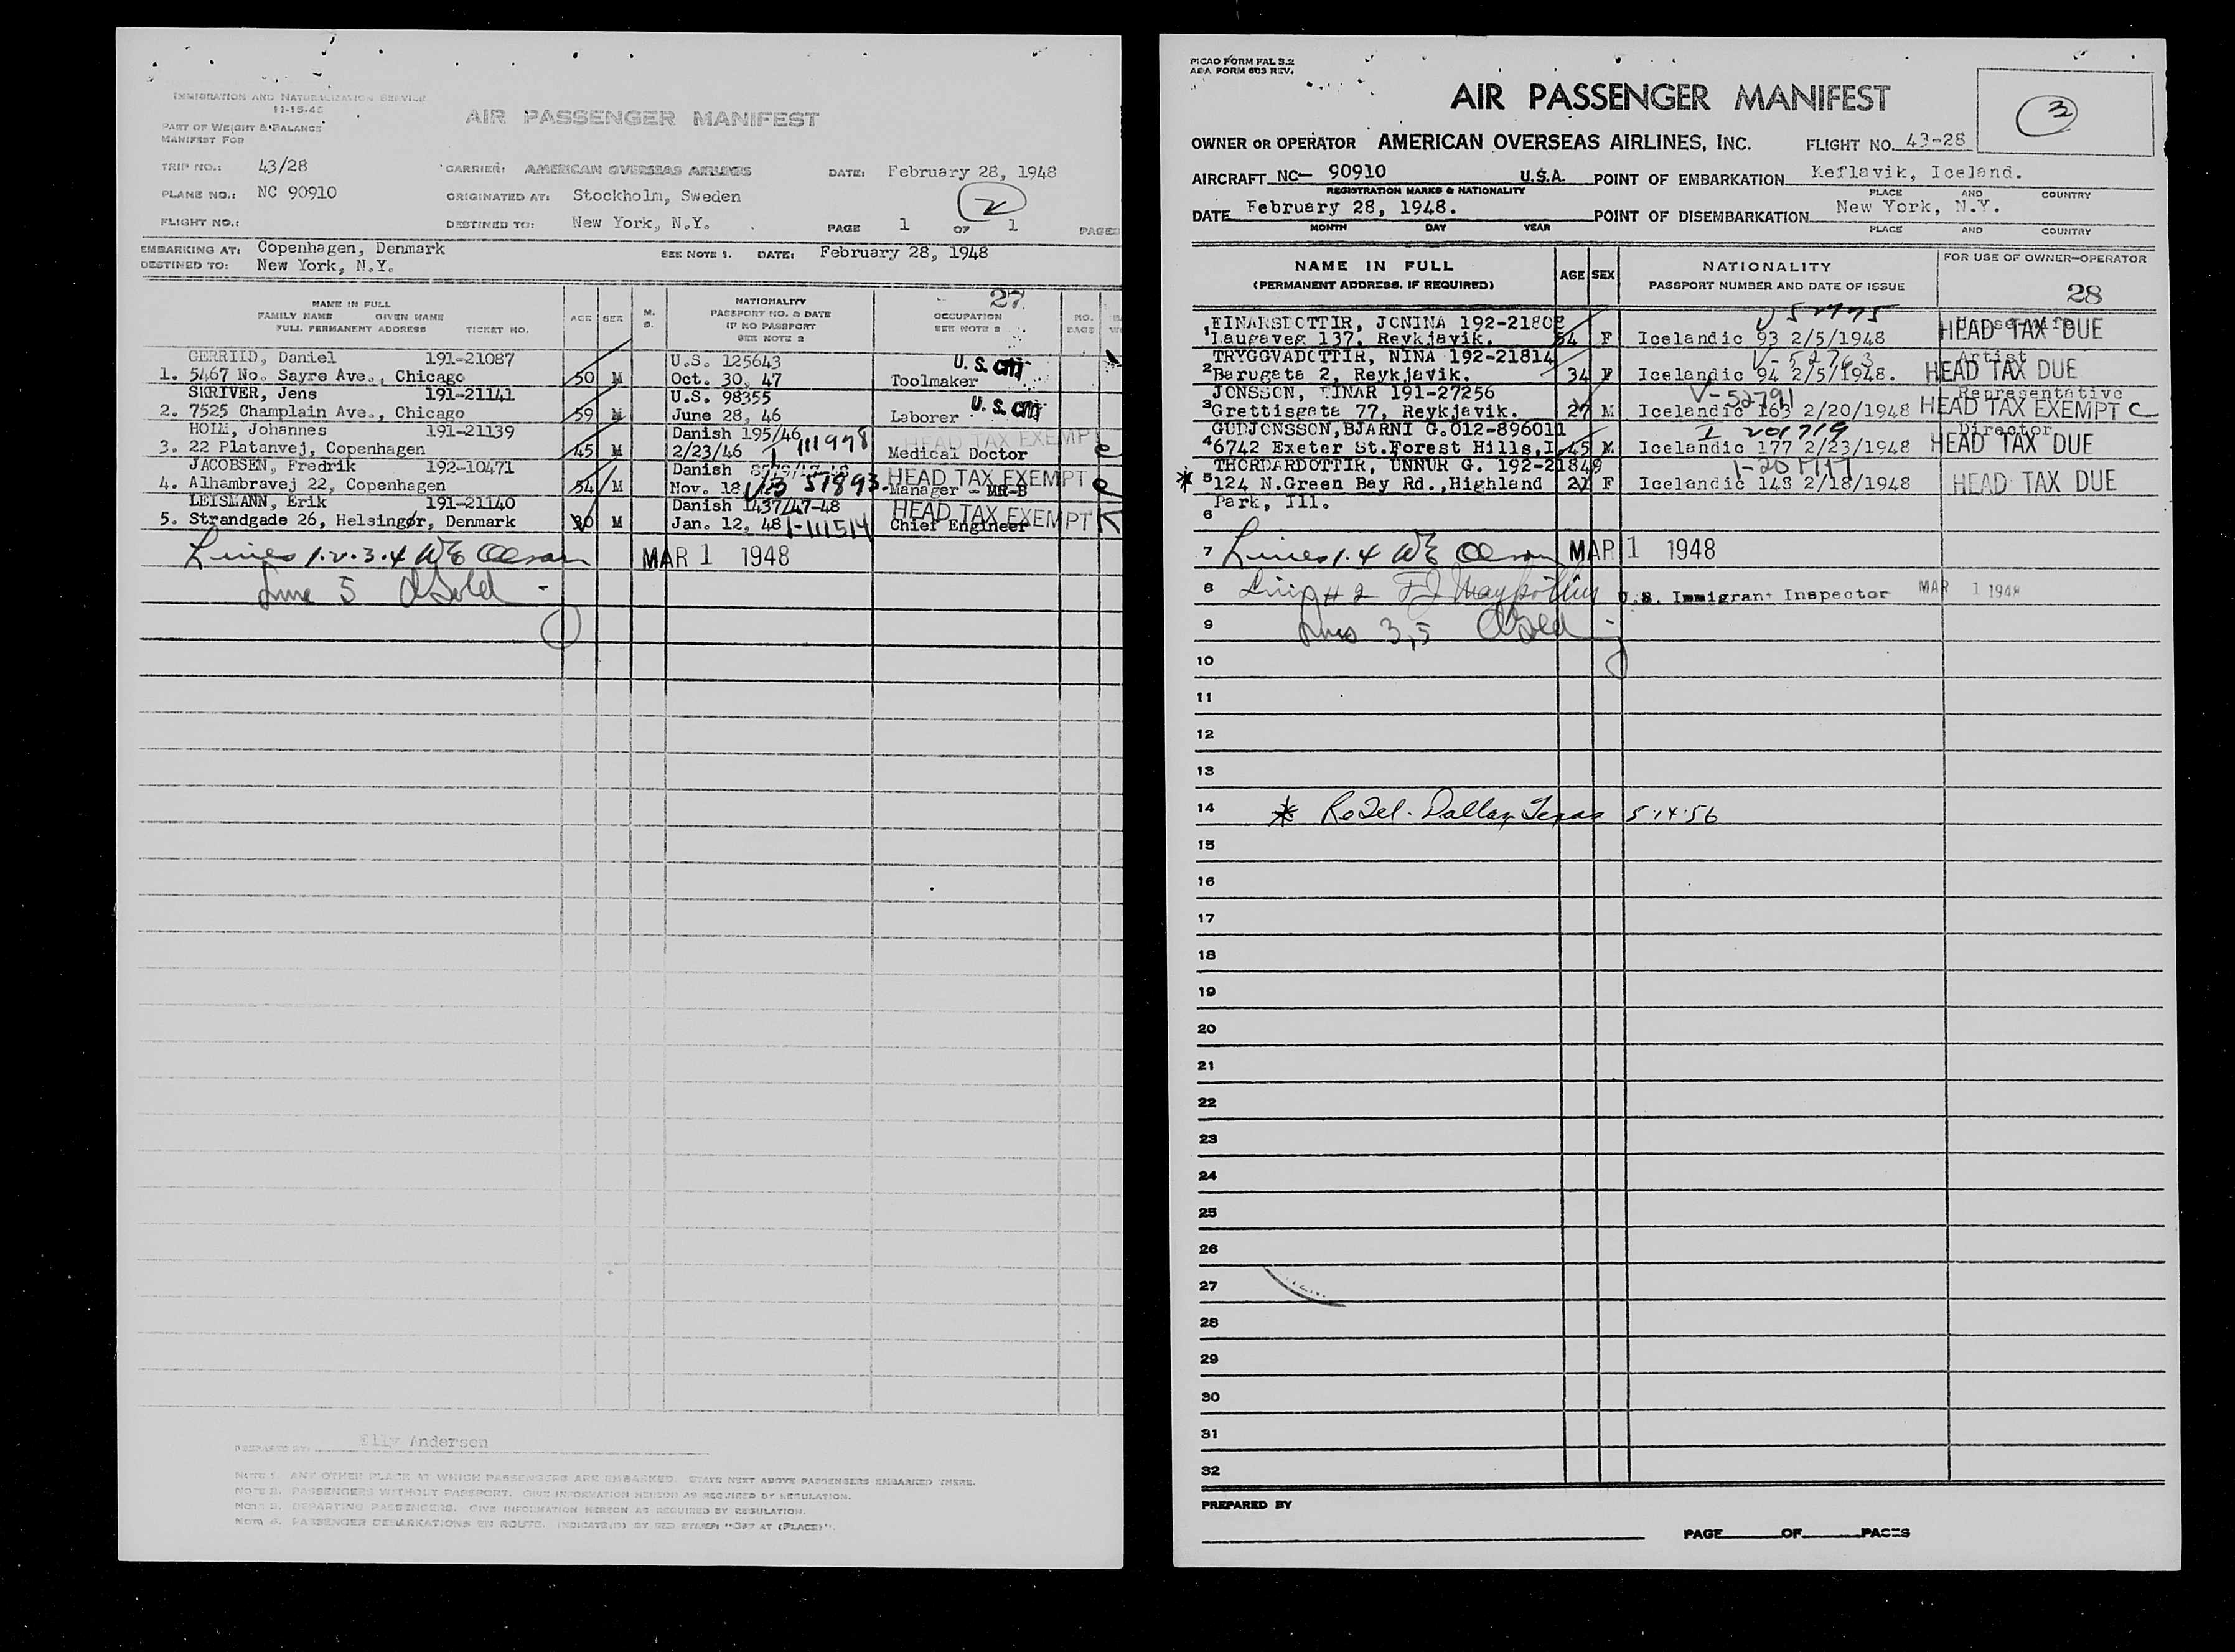 IMMIGRATION AND NATURALIZATION SERVICE
11-15-46
PART OF WEIGHT & BALANCE
MANIFEST FOR
AIR PASSENGER MANIFEST
TRIP NO.: 43/28 CARRIER: AMERICAN OVERSEAS AIRLINES DATE: February 28, 1948
PLANE NO.: NC 90910 ORIGINATED AT: Stockholm, Sweden 2
FLIGHT NO.: DESTINED TO: New York, N.Y. PAGE 1 OF 1 PAGES
EMBARKING AT: Copenhagen, Denmark SEE NOTE 1. DATE: February 28, 1948
DESTINED TO: New York, N.Y.
27
NAME IN FULL
FAMILY NAME GIVEN NAME
FULL PERMANENT ADDRESS TICKET NO.
AGE SEX M. S.
NATIONALITY
PASSPORT NO. & DATE
IF NO PASSPORT
SEE NOTE 2
OCCUPATION
SEE NOTE 3
NO. BAGS
GERRIID, Daniel 191-21087 U.S. 125643 U. S. CIT
1. 5467 No. Sayre Ave., Chicago 50 M Oct. 30, 47 Toolmaker
SKRIVER, Jens 191-21141 U.S. 98355 U. S. CIT
2. 7525 Champlain Ave., Chicago 59 M June 28, 46 Laborer
HOLM, Johannes 191-21139 Danish 195/46 I 111978 HEAD TAX EXEMPT
3. 22 Platanvej, Copenhagen 45 M 2/23/46 Medical Doctor
JACOBSEN, Fredrik 192-10471 Danish HEAD TAX EXEMPT
4. Alhambravej 22, Copenhagen 54 M Nov. 18 57893 Manager - MR-B
LEISMANN, Erik 191-21140 Danish 1437/47-48 HEAD TAX EXEMPT
5. Strandgade 26, Helsingør, Denmark 30 M Jan. 12, 48 I-111514 Chief Engineer
Lines 1.2.3.4 MAR 1 1948
Line 5
PREPARED BY: Elly Andersen
NOTE 1. ANY OTHER PLACE AT WHICH PASSENGERS ARE EMBARKED. STATE NEXT ABOVE PASSENGERS EMBARKED THERE.
NOTE 2. PASSENGERS WITHOUT PASSPORT. GIVE INFORMATION HEREON AS REQUIRED BY REGULATION.
NOTE 3. DEPARTING PASSENGERS. GIVE INFORMATION HEREON AS REQUIRED BY REGULATION.
NOTE 4. PASSENGER DEBARKATIONS EN ROUTE. INDICATE(D) BY RED STAMP: "OFF AT (PLACE)".
PICAO FORM FAL 3.2
AOA FORM 603 REV.
AIR PASSENGER MANIFEST
3
OWNER OR OPERATOR AMERICAN OVERSEAS AIRLINES, INC. FLIGHT NO. 43-28
AIRCRAFT NC- 90910 U.S.A. POINT OF EMBARKATION Keflavik, Iceland.
REGISTRATION MARKS & NATIONALITY PLACE AND COUNTRY
DATE February 28, 1948. POINT OF DISEMBARKATION New York, N.Y.
MONTH DAY YEAR PLACE AND COUNTRY
NAME IN FULL
(PERMANENT ADDRESS, IF REQUIRED)
AGE SEX
NATIONALITY
PASSPORT NUMBER AND DATE OF ISSUE
FOR USE OF OWNER-OPERATOR
28
1 EINARSDOTTIR, JONINA 192-21802
Laugaveg 137, Reykjavik. 54 F Icelandic 93 2/5/1948 HEAD TAX DUE
TRYGGVADOTTIR, NINA 192-21814 V-52763 Artist
2 Barugata 2, Reykjavik. 34 F Icelandic 94 2/5/1948. HEAD TAX DUE
JONSSON, EINAR 191-27256 V-52791 Representative
3 Grettisgata 77, Reykjavik. 27 M Icelandic 163 2/20/1948 HEAD TAX EXEMPT C
GUDJONSSON, BJARNI G. 012-896011 I 201719 Director
4 6742 Exeter St. Forest Hills, I. 45 M Icelandic 177 2/23/1948 HEAD TAX DUE
THORDARDOTTIR, UNNUR G. 192-21849
* 5 124 N. Green Bay Rd., Highland 21 F Icelandic 148 2/18/1948 HEAD TAX DUE
Park, Ill.
6
7 Lines 1.4 MAR 1 1948
8 Line # 2 U.S. Immigrant Inspector MAR 1 1948
9 Lines 3,5
10
11
12
13
14 * ReTel. Dallas, Texas 5-14-56
15
16
17
18
19
20
21
22
23
24
25
26
27
28
29
30
31
32
PREPARED BY
PAGE OF PAGES